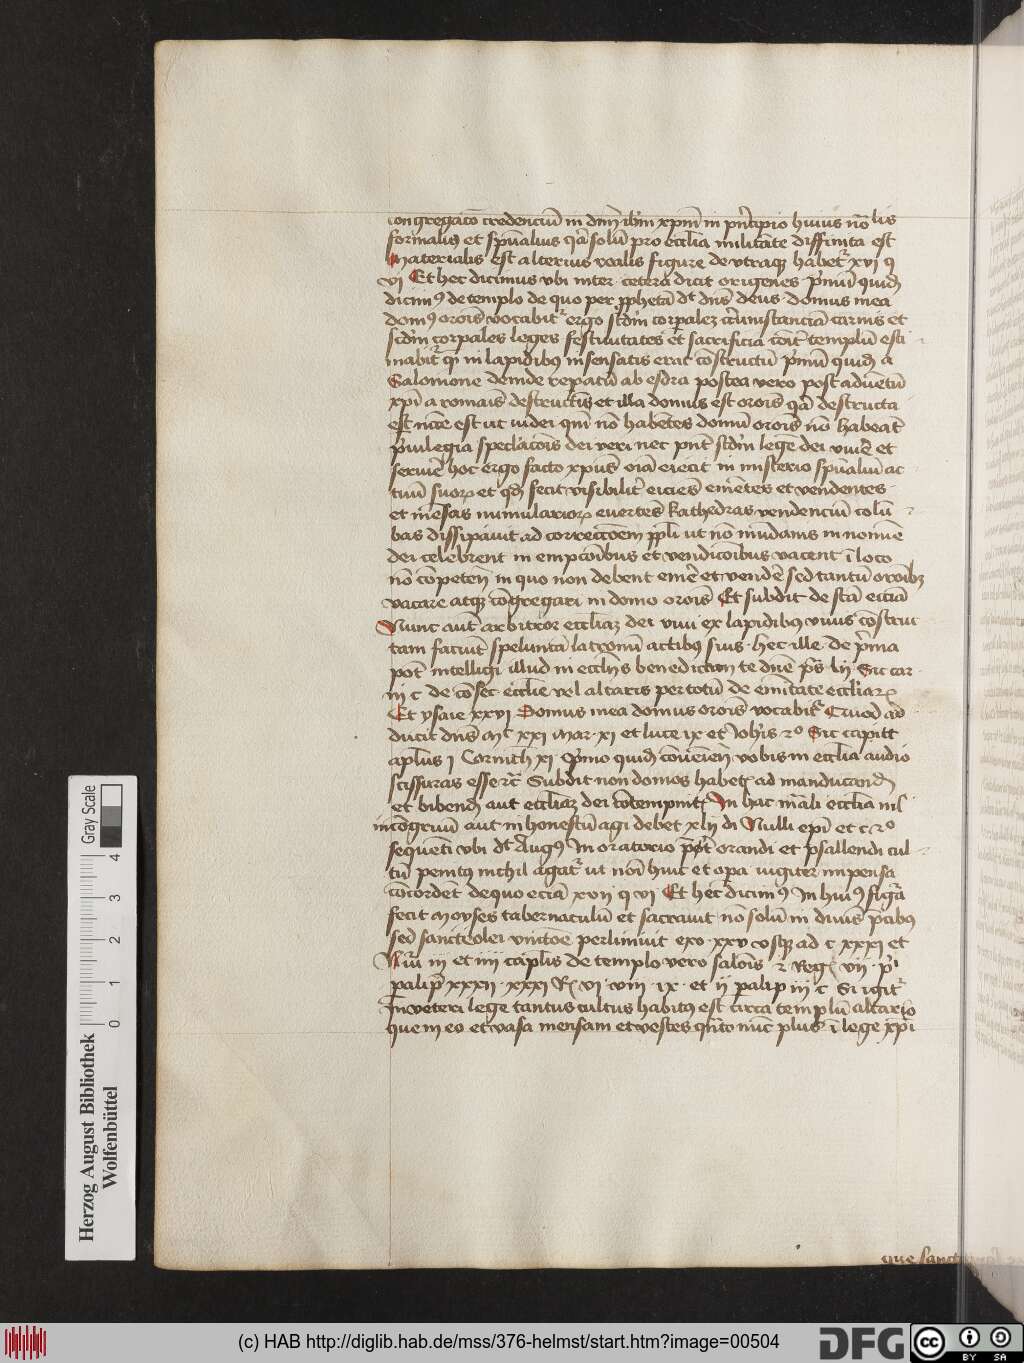 congregacō credenciū in dnm̄ ihm̄ xpm̄ in pn̄cipio huius nō lis
formaliꝰ et spūalius qꝛ solū pro ecclīa militāte diffinita est
Materialis est alterius realis figure de vtraqꝫ habet᷑ xvi q
vi Et hec dicimus vbi inter cetera dicit origenes pͥmū quid̄
dicimꝰ de templo de quo per ꝓphetā dt̄ dn̄s deus domus mea
domꝰ orōis vocabit᷑ ergo scd̄m corpalez circūstanciā carnis et
scd̄m corpales leges festiuitates et sacrificia templū esti
mabit᷑ qͥ in lapidibꝰ insensatis erat cōstructū pͥmū quid̄ a
Salomone deinde repatū ab esdra postea vero post aduētū
xpi a romāis destructū et illa domus est orōis qꝛ destructa
est est ut iudei qui nō habētes domū orōis nō habeāt
pͥuilegia dei veri nec pn̄t scd̄m legē dei viuē et
seruiē hoc ergo facto xpūs eiecit in misterio spūaliū ac
tuū suoꝝ et qd̄ fecit visibilit᷑ eiciēs emētes et vendentes
et mēsas numularioꝝ euertēs kathedras vendenciū colū
bas dissipauit ad correccōem ppl̄i ut nō mūdanis in nomīe
dei celebrent in empcōibus et vendicōibus vacent ī loco
nō cōpeten̄ in quo non debent emē et vendē sed tantū orōibꝫ
vacare atqꝫ cōgregari in domo orōis Et subdit de stā eciā
Nunc aut̄ arbitror eccl̄iaz dei viui ex lapidibꝰ viuis cōstruc
tam faciūt speluncā latronū actibꝰ suis hec ille de pͥma
pōt intelligi illud in eccl̄ijs benedicam te dn̄e pˢ lij Sic car
iij c de cōsec ecclīe vel altaris per totū de emitate eccl̄iaꝝ
Et ysaie xxvi Domus mea domus orōis vocabit᷑ Quod ad
ducit dn̄s Mᵗ xxi Mar xi et luce ix et Iohīs 2º Sic capitt
apl̄us i Corinth xi Pͥmo quid̄ cōueniēn̄ vobis in eccl̄ia audio
scissuras esse ꝛc̄ Subdit non domos habet᷑ ad manducand̄
et bibend̄ aut eccl̄iaz dei cōtempnit᷑ In hac māli ecclīa nil
incōgruū aut inhonestū agi debet xlij di Nulli epī et c 2º
sequēti vbi dt̄ Augꝰ In oratorio pͭ orandi et psallendi cul
tū penitꝰ nichil agat᷑ ut noī huic et opa iugiter impensa
cōcordēt de quo eciā xvij q vi Et hec dicimꝰ In huiꝰ figā
fecit Moyses tabernaculū et sacrauit nō solū in diuis pcibꝰ
sed sancte olei vnctōe perlimiuit exo xxv usqꝫ ad c xxxi et
Nūi iij et iiij capl̄is de templo vero salōis 2 Reg᷑ vij pͥ
palip̄ xxxij xxxi R᷑ vi viij ix et ij palip iij c Si igit᷑
In veteri lege tantus cultus habitꝰ est circa templū altario
que in eo et vasa mensam et vestes qn̄to nūc plus ī lege xpi
que sanct
Herzog August Bibliothek
Wolfenbüttel
Gray Scale
0 1 2 3 4
(c) HAB http://diglib.hab.de/mss/376-helmst/start.htm?image=00504
DFG
cc BY SA